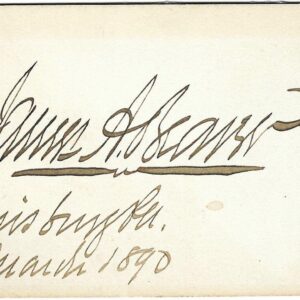 James A. Beaver
risburg Pa.
March 1890